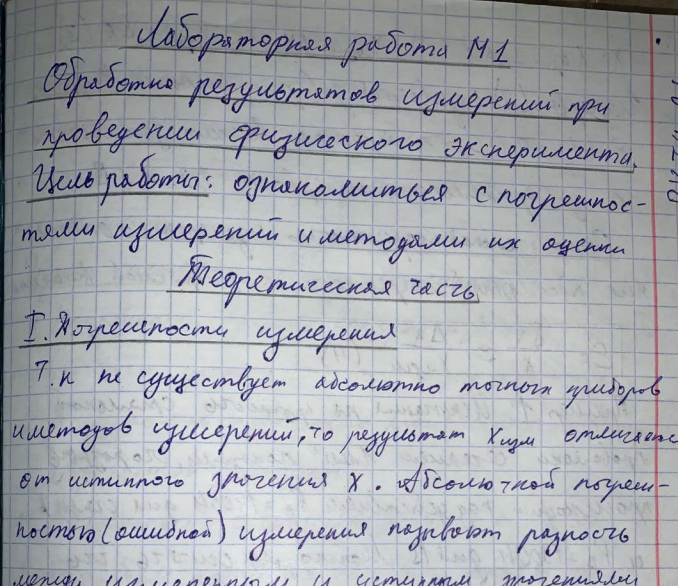 Лабораторная работа №1
Обработка результатов измерений при
проведении физического эксперимента.
Цель работы: ознакомиться с погрешнос-
тями измерений и методами их оценки
Теоретическая часть
I. Погрешности измерения
Т.к не существует абсолютно точных приборов
и методов измерений, то результат Xизм отличается
от истинного значения X. Абсолютной погреш-
ностью (ошибкой) измерения называют разность
между измеренным и истинным значениями